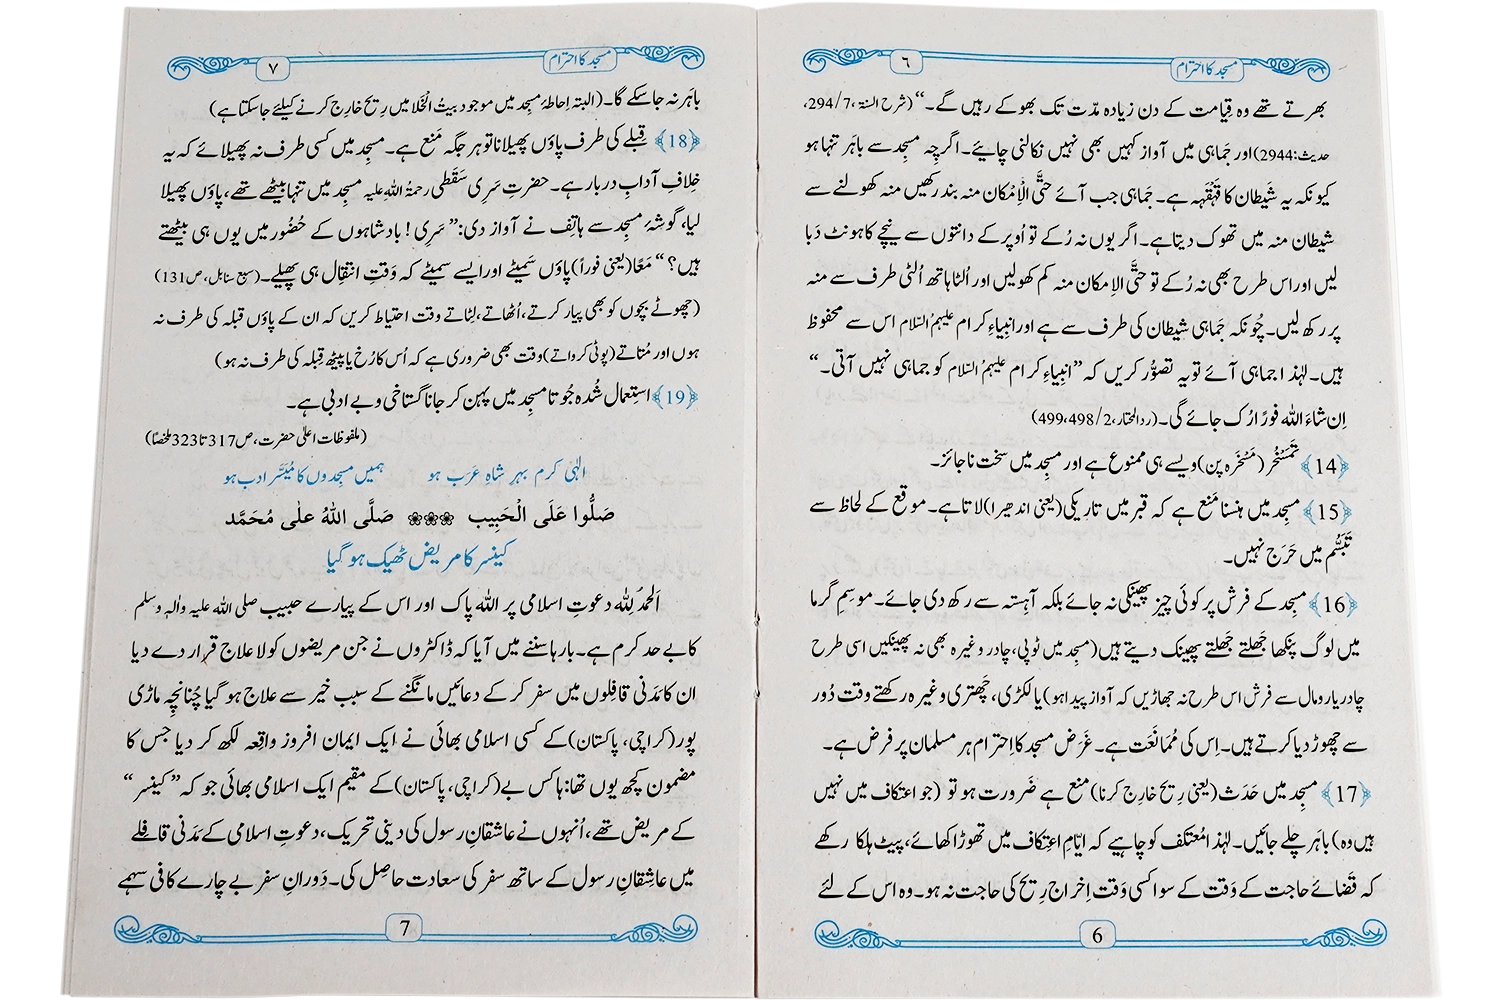 مسجد کا احترام
٦
بھرتے تھے وہ قِیامت کے دن زیادہ مدّت تک بھوکے رہیں گے۔“ (شرح السنۃ، 294/7،
حدیث:2944) اور جَماہی میں آواز کہیں بھی نہیں نکالنی چاہیے۔ اگرچہ مسجِد سے باہَر تنہا ہو
کیونکہ یہ شَیطان کا قَہْقَہہ ہے۔ جَماہی جب آئے حتَّی الْاِمْکان منہ بند رکھیں منہ کھولنے سے
شیطان منہ میں تھوک دیتا ہے۔ اگر یوں نہ رُکے تو اُوپر کے دانتوں سے نیچے کا ہونٹ دَبا
لیں اور اس طرح بھی نہ رُکے تو حتَّی الاِمکان منہ کم کھولیں اور اُلٹا ہاتھ اُلٹی طرف سے منہ
پر رکھ لیں۔ چُونکہ جَماہی شیطان کی طرف سے ہے اور انبیاءِ کرام علیہمُ السّلام اس سے محفوظ
ہیں۔ لہٰذا جماہی آئے تو یہ تصوُّر کریں کہ ”انبیاءِ کرام علیہمُ السّلام کو جماہی نہیں آتی۔“
اِن شاءَ اللہ فورًا رُک جائے گی۔ (ردالمحتار، 2/ 499،498)
﴿14﴾ تَمَسْخُر (مَسْخَرہ پن) ویسے ہی ممنوع ہے اور مسجِد میں سخت ناجائز۔
﴿15﴾ مسجِد میں ہنسنا مَنع ہے کہ قبر میں تاریکی (یعنی اندھیرا) لاتا ہے۔ موقع کے لحاظ سے
تَبَسُّم میں حَرَج نہیں۔
﴿16﴾ مسجِد کے فرش پر کوئی چیز پھینکی نہ جائے بلکہ آہستہ سے رکھ دی جائے۔ موسِمِ گرما
میں لوگ پنکھا جَھلتے جَھلتے پھینک دیتے ہیں (مسجِد میں ٹوپی، چادر وغیرہ بھی نہ پھینکیں اسی طرح
چادر یا رومال سے فرش اس طرح نہ جھاڑیں کہ آواز پیدا ہو) یا لکڑی، چَھتری وغیرہ رکھتے وقت دُور
سے چھوڑ دیا کرتے ہیں۔ اِس کی مُمانَعت ہے۔ غَرَض مسجد کا اِحترام ہر مسلمان پر فرض ہے۔
﴿17﴾ مسجِد میں حَدَث (یعنی رِیح خارِج کرنا) منع ہے ضَرورت ہو تو (جو اعتکاف میں نہیں
ہیں وہ) باہَر چلے جائیں۔ لہٰذا مُعتکف کو چاہیے کہ ایّامِ اعتِکاف میں تھوڑا کھائے، پیٹ ہلکا رکھے
کہ قَضائے حاجت کے وَقت کے سوا کسی وَقت اِخراجِ رِیح کی حاجت نہ ہو۔ وہ اس کے لئے
6
مسجد کا احترام
٧
باہَر نہ جاسکے گا۔ (البتہ اِحاطۂ مسجِد میں موجود بیتُ الْخَلا میں رِیح خارِج کرنے کیلئے جاسکتا ہے)
﴿18﴾ قبلے کی طرف پاؤں پھیلانا تو ہر جگہ مَنع ہے۔ مسجِد میں کسی طرف نہ پھیلائے کہ یہ
خِلافِ آدابِ دربار ہے۔ حضرتِ سَرِی سَقَطی رحمۃُ اللہِ علیہ مسجِد میں تنہا بیٹھے تھے، پاؤں پھیلا
لیا، گوشۂ مسجد سے ہاتِف نے آواز دی: ”سَرِی! بادشاہوں کے حُضُور میں یوں ہی بیٹھتے
ہیں؟“ مَعًا (یعنی فوراً) پاؤں سَمیٹے اور ایسے سمیٹے کہ وَقتِ انتِقال ہی پھیلے۔ (سبع سنابل، ص131)
(چھوٹے بچوں کو بھی پیار کرتے، اُٹھاتے، لِٹاتے وقت احتیاط کریں کہ ان کے پاؤں قبلہ کی طرف نہ
ہوں اور مُتاتے (پوٹی کرواتے) وقت بھی ضروری ہے کہ اُس کا رُخ یا پیٹھ قِبلہ کی طرف نہ ہو)
﴿19﴾ استعمال شُدہ جُوتا مسجِد میں پہن کر جانا گستاخی و بے ادبی ہے۔
(ملفوظات اعلیٰ حضرت، ص317تا323ملخصًا)
الٰہی کرم بہرِ شاہِ عَرَب ہو ہمیں مسجدوں کا مُیَسَّر ادب ہو
صَلُّوا عَلَی الْحَبِیب ❀❀❀ صَلَّی اللهُ علٰی مُحَمَّد
کینسر کا مریض ٹھیک ہو گیا
اَلحمدُ لِلّٰہ دعوتِ اسلامی پر اللہ پاک اور اس کے پیارے حبیب صلی اللہ علیہ واٰلہٖ وسلم
کا بے حد کرم ہے۔ بارہا سننے میں آیا کہ ڈاکٹروں نے جن مریضوں کو لاعلاج قرار دے دیا
ان کا مَدَنی قافِلوں میں سفر کر کے دعائیں مانگنے کے سبب خیر سے علاج ہو گیا چُنانچہِ ماڑی
پور (کراچی، پاکستان) کے کسی اسلامی بھائی نے ایک ایمان افروز واقِعہ لکھ کر دیا جس کا
مضمون کچھ یوں تھا: ہاکس بے (کراچی، پاکستان) کے مقیم ایک اسلامی بھائی جو کہ ”کینسر“
کے مریض تھے، اُنہوں نے عاشقانِ رسول کی دینی تحریک، دعوتِ اسلامی کے مَدَنی قافلے
میں عاشِقانِ رسول کے ساتھ سفر کی سعادت حاصِل کی۔ دَورانِ سفر بے چارے کافی سہمے
7